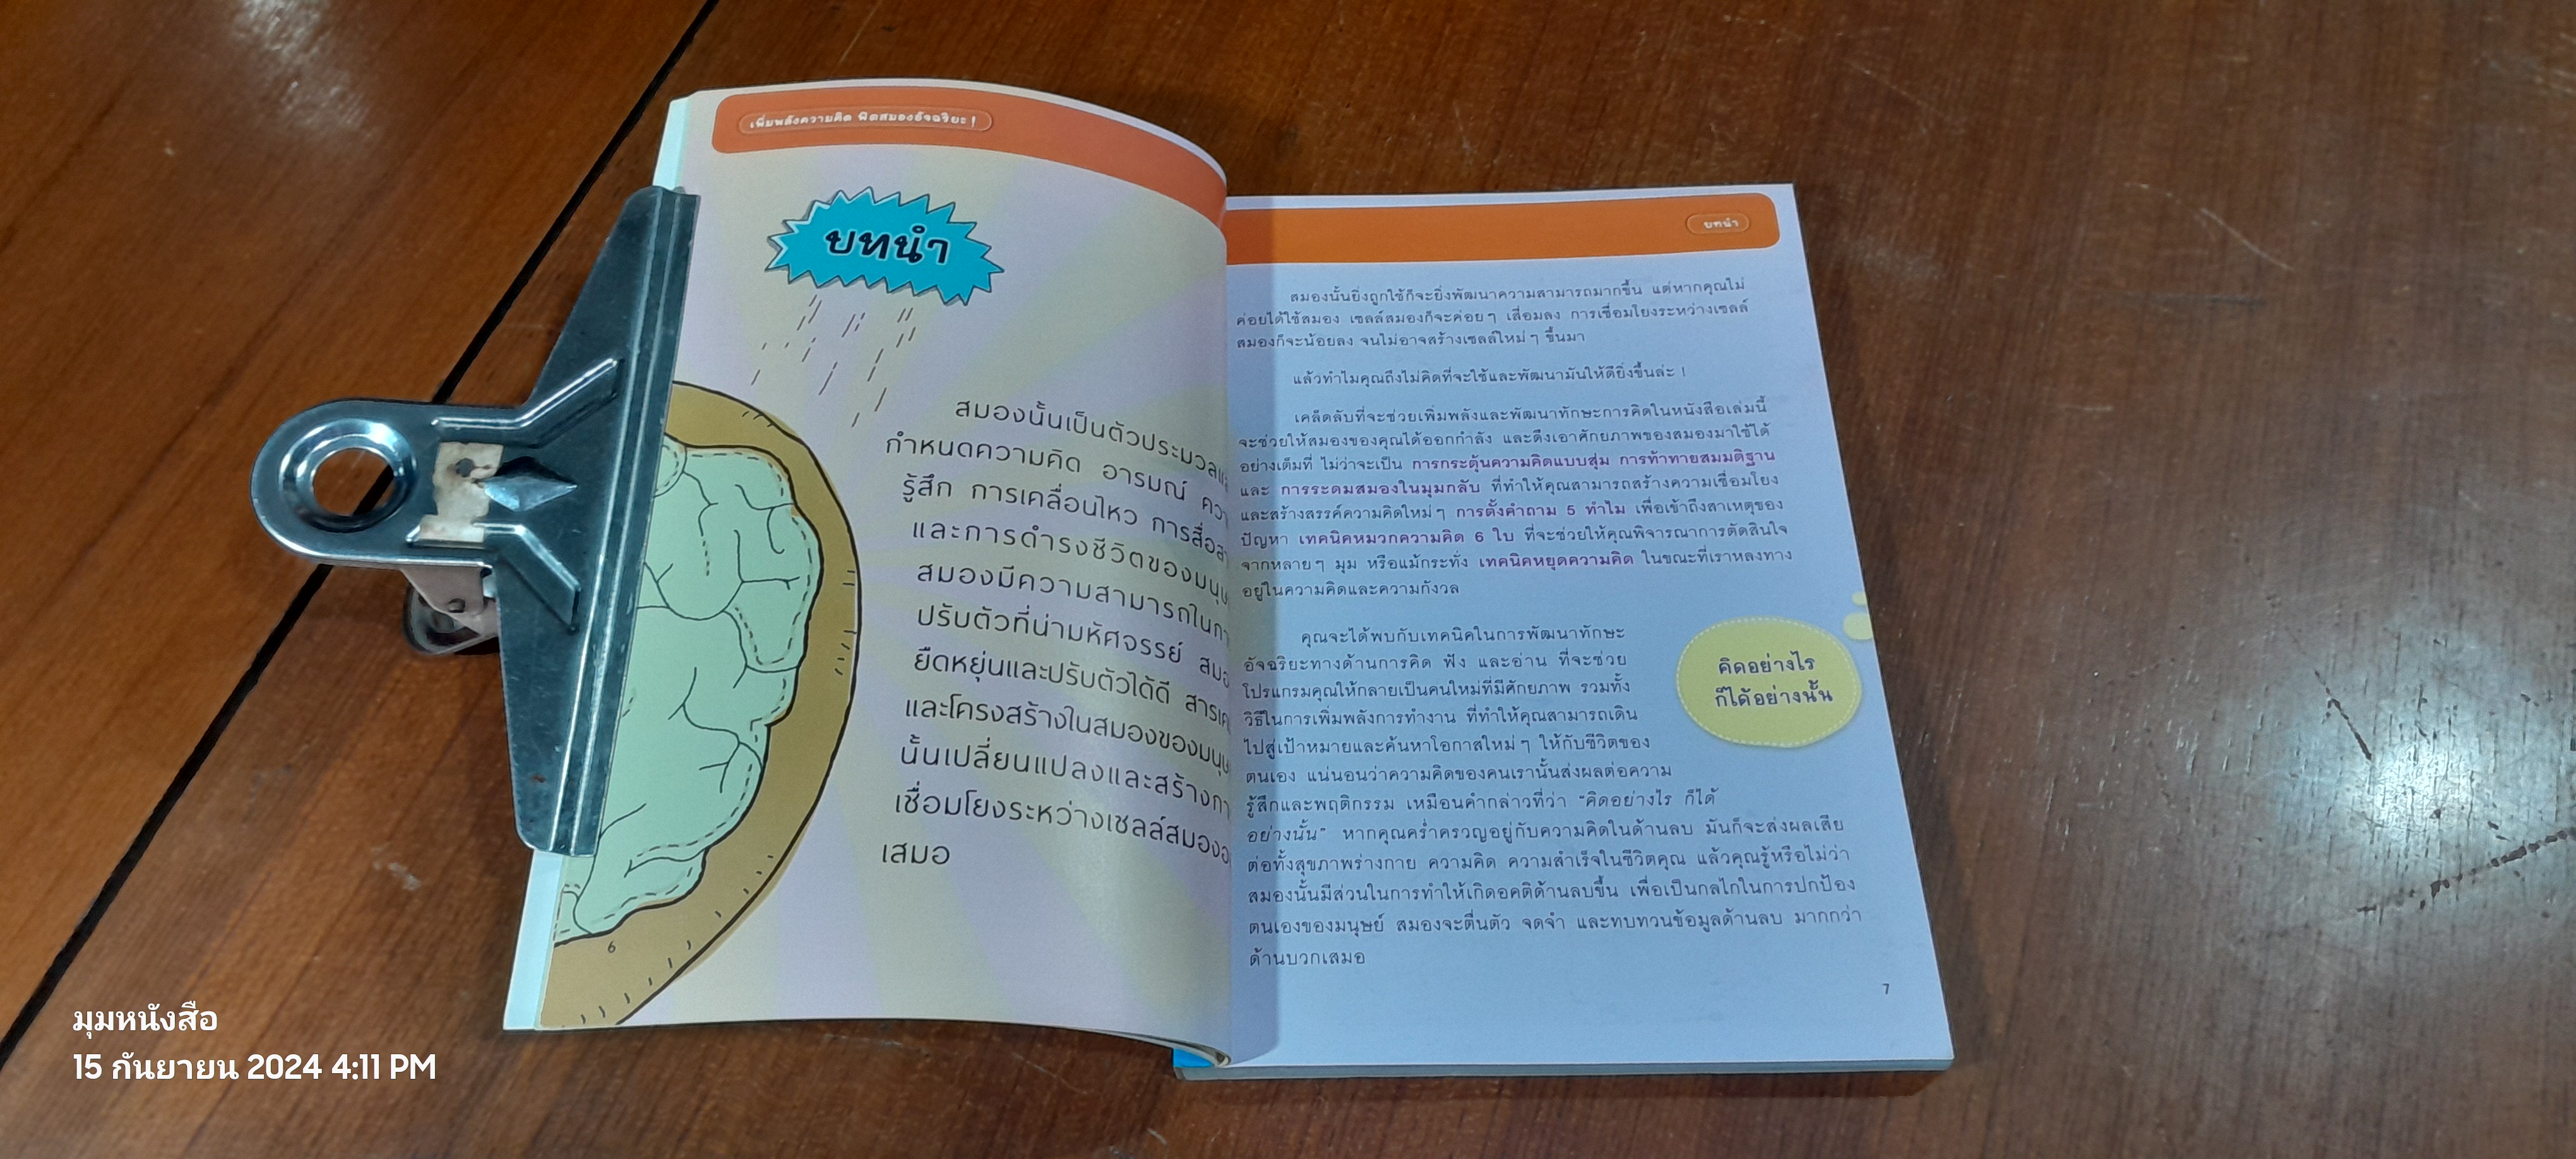 เพิ่มพลังความคิด พิตสมองอัจฉริยะ !
บทนำ
สมองนั้นเป็นตัวประมวลแ
กำหนดความคิด อารมณ์ ควา
รู้สึก การเคลื่อนไหว การสื่อสา
และการดำรงชีวิตของมนุษ
สมองมีความสามารถในกา
ปรับตัวที่น่ามหัศจรรย์ สมอ
ยืดหยุ่นและปรับตัวได้ดี สารเค
และโครงสร้างในสมองของมนุษ
นั้นเปลี่ยนแปลงและสร้างกา
เชื่อมโยงระหว่างเซลล์สมองอ
เสมอ
6
บทนำ
สมองนั้นยิ่งถูกใช้ก็จะยิ่งพัฒนาความสามารถมากขึ้น แต่หากคุณไม่
ค่อยได้ใช้สมอง เซลล์สมองก็จะค่อยๆ เสื่อมลง การเชื่อมโยงระหว่างเซลล์
สมองก็จะน้อยลง จนไม่อาจสร้างเซลล์ใหม่ๆ ขึ้นมา
แล้วทำไมคุณถึงไม่คิดที่จะใช้และพัฒนามันให้ดียิ่งขึ้นล่ะ !
เคล็ดลับที่จะช่วยเพิ่มพลังและพัฒนาทักษะการคิดในหนังสือเล่มนี้
จะช่วยให้สมองของคุณได้ออกกำลัง และดึงเอาศักยภาพของสมองมาใช้ได้
อย่างเต็มที่ ไม่ว่าจะเป็น การกระตุ้นความคิดแบบสุ่ม การท้าทายสมมติฐาน
และ การระดมสมองในมุมกลับ ที่ทำให้คุณสามารถสร้างความเชื่อมโยง
และสร้างสรรค์ความคิดใหม่ๆ การตั้งคำถาม 5 ทำไม เพื่อเข้าถึงสาเหตุของ
ปัญหา เทคนิคหมวกความคิด 6 ใบ ที่จะช่วยให้คุณพิจารณาการตัดสินใจ
จากหลายๆ มุม หรือแม้กระทั่ง เทคนิคหยุดความคิด ในขณะที่เราหลงทาง
อยู่ในความคิดและความกังวล
คุณจะได้พบกับเทคนิคในการพัฒนาทักษะ
อัจฉริยะทางด้านการคิด ฟัง และอ่าน ที่จะช่วย
โปรแกรมคุณให้กลายเป็นคนใหม่ที่มีศักยภาพ รวมทั้ง
วิธีในการเพิ่มพลังการทำงาน ที่ทำให้คุณสามารถเดิน
ไปสู่เป้าหมายและค้นหาโอกาสใหม่ๆ ให้กับชีวิตของ
ตนเอง แน่นอนว่าความคิดของคนเรานั้นส่งผลต่อความ
รู้สึกและพฤติกรรม เหมือนคำกล่าวที่ว่า "คิดอย่างไร ก็ได้
อย่างนั้น" หากคุณคร่ำครวญอยู่กับความคิดในด้านลบ มันก็จะส่งผลเสีย
ต่อทั้งสุขภาพร่างกาย ความคิด ความสำเร็จในชีวิตคุณ แล้วคุณรู้หรือไม่ว่า
สมองนั้นมีส่วนในการทำให้เกิดอคติด้านลบขึ้น เพื่อเป็นกลไกในการปกป้อง
ตนเองของมนุษย์ สมองจะตื่นตัว จดจำ และทบทวนข้อมูลด้านลบ มากกว่า
ด้านบวกเสมอ
คิดอย่างไร
ก็ได้อย่างนั้น
7
มุมหนังสือ
15 กันยายน 2024 4:11 PM